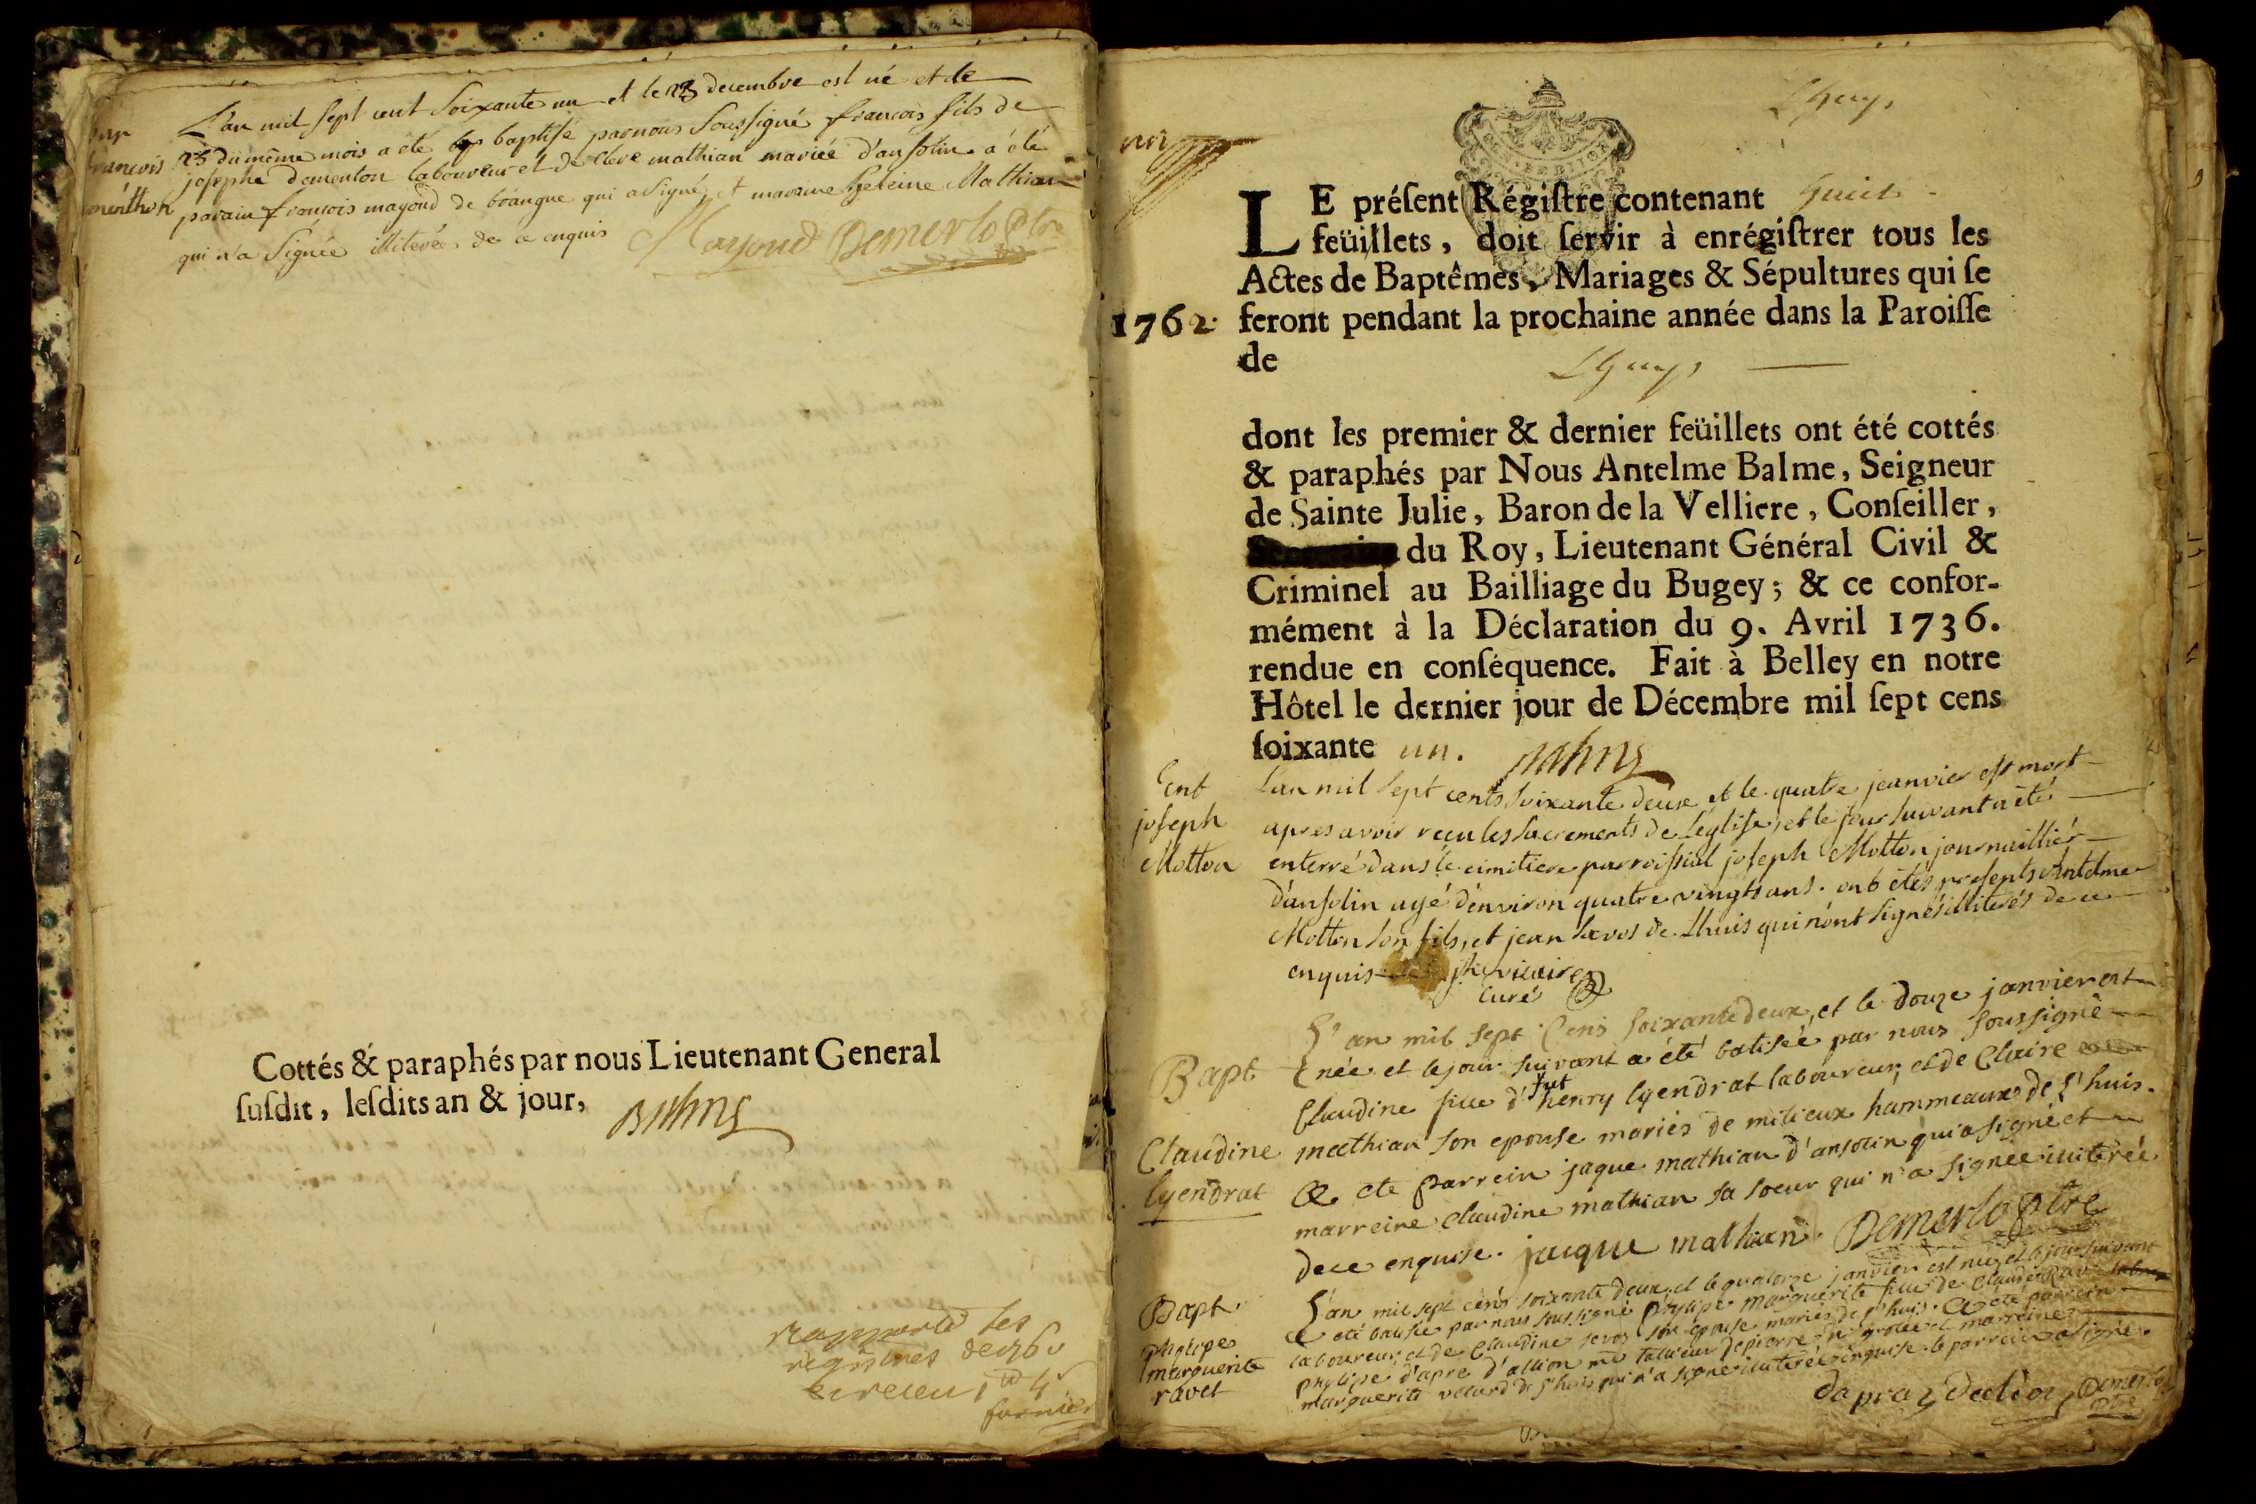 L'an mil sept cent soixante un et le 23 decembre est né et le
23 du même mois a été baptisé par nous soussigné françois fils de
josephe dementon laboureur et de cleve mathian mariée d'ansolin a été
parain françois mayoud de brangue qui a signé, et maraine heleine Mathian
qui n'a signée illiterée de ce enquis
Mayoud Demerlo ptre
françois
menthon
Cottés & paraphés par nous Lieutenant General
ſuſdit, leſdits an & jour,
rapporté les
registres de 176
et receu
fornier
Lhuys
un
LE préſent Régiſtre contenant huit
feüillets, doit ſervir à enrégiſtrer tous les
Actes de Baptêmes, Mariages & Sépultures qui ſe
1762. feront pendant la prochaine année dans la Paroiſſe
de Lhuys
dont les premier & dernier feüillets ont été cottés
& paraphés par Nous Antelme Balme, Seigneur
de Sainte Julie, Baron de la Velliere, Conſeiller,
du Roy, Lieutenant Général Civil &
Criminel au Bailliage du Bugey; & ce confor-
mément à la Déclaration du 9. Avril 1736.
rendue en conſéquence. Fait à Belley en notre
Hôtel le dernier jour de Décembre mil ſept cens
ſoixante un.
Ent
joseph
Motton
L'an mil sept cents soixante deux et le quatre jeanvier est mort
apres avoir reçu les sacrements de l'église, et le jour suivant a été
enterré dans le cimitiere parroissial joseph Motton journaillier
d'ansolin agé d'environ quatre vingts ans. ont étés presents Antelme
Motton son fils, et jean sevos de Lhuis qui n'ont signés illiterés de ce
enquis
curé
Bapt
Claudine
lyendrat
L'an mil sept cens soixante deux, et le douze janvier est
née et le jour suivant a été batisée par nous soussigné
Claudine fille d'henry lyendrat laboureur, et de Claire
mathian son epouse mariés de milieux hammeaux de l'huis.
a eté parrein jaque mathian d'ansolin qui a signé et
marreine claudine mathian sa soeur qui n'a signée illiterée
de ce enquise. jacque mathian. Demerlo ptre
Bapt.
phylipe
marguerite
ravet
L'an mil sept cens soixante deux, et le quatorze janvier est née, et le jour suivant
a eté batisée par nous soussigné phylipe marguerite fille de claude ravet
laboureur, et de claudine sevoz son epouse mariés de l'huis. a eté parrein
phylipe d'apre d'allion tallieur de pierre et marreine
marguerite de l'huis qui n'a signé illiterée enquise. le parrein a signé.
Demerlo
ptre